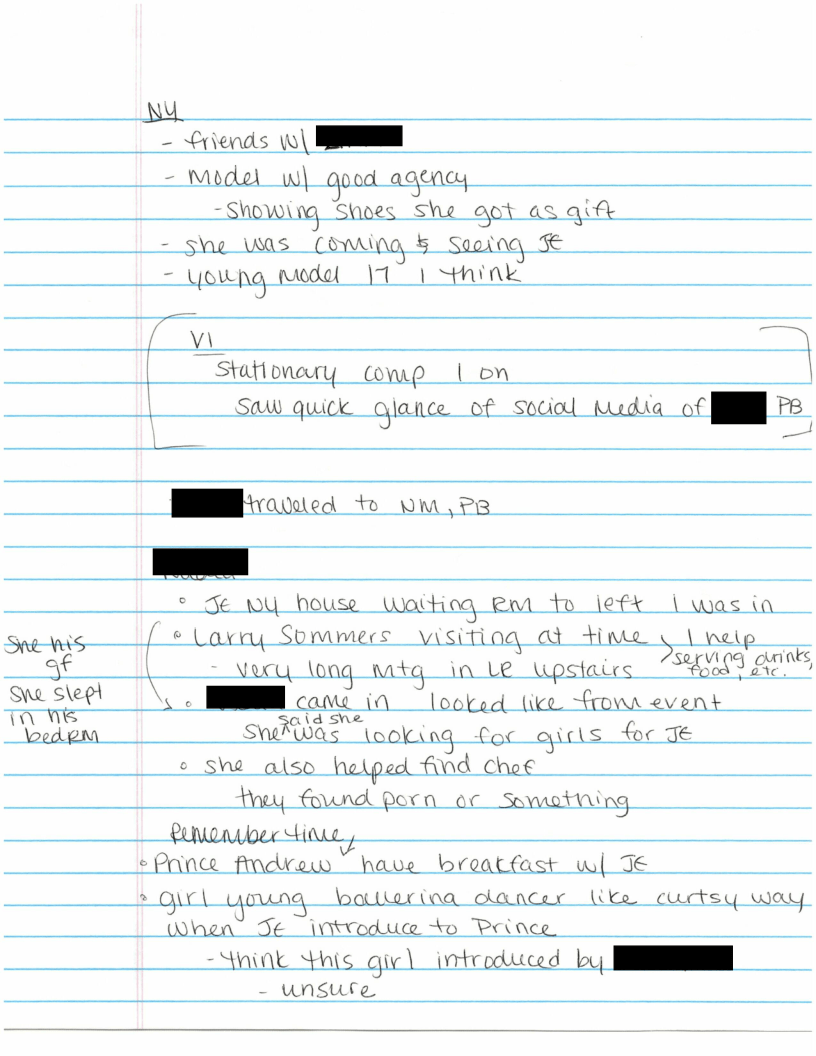 NY
- friends w/
- Model w/ good agency
- showing shoes she got as gift
- she was coming & seeing JE
- young model 17 I think
VI
Stationary comp I on
saw quick glance of social media of PB
traveled to NM, PB
° JE NY house waiting RM to left I was in
° Larry Sommers visiting at time > I help serving drinks, food, etc.
- very long mtg in LR upstairs
She his
gf
She slept
in his
bedRM
° came in looked like from event
She said she was looking for girls for JE
° she also helped find chef
they found porn or something
Remember time
° Prince Andrew have breakfast w/ JE
° girl young ballerina dancer like curtsy way
when JE introduce to Prince
- think this girl introduced by
- unsure